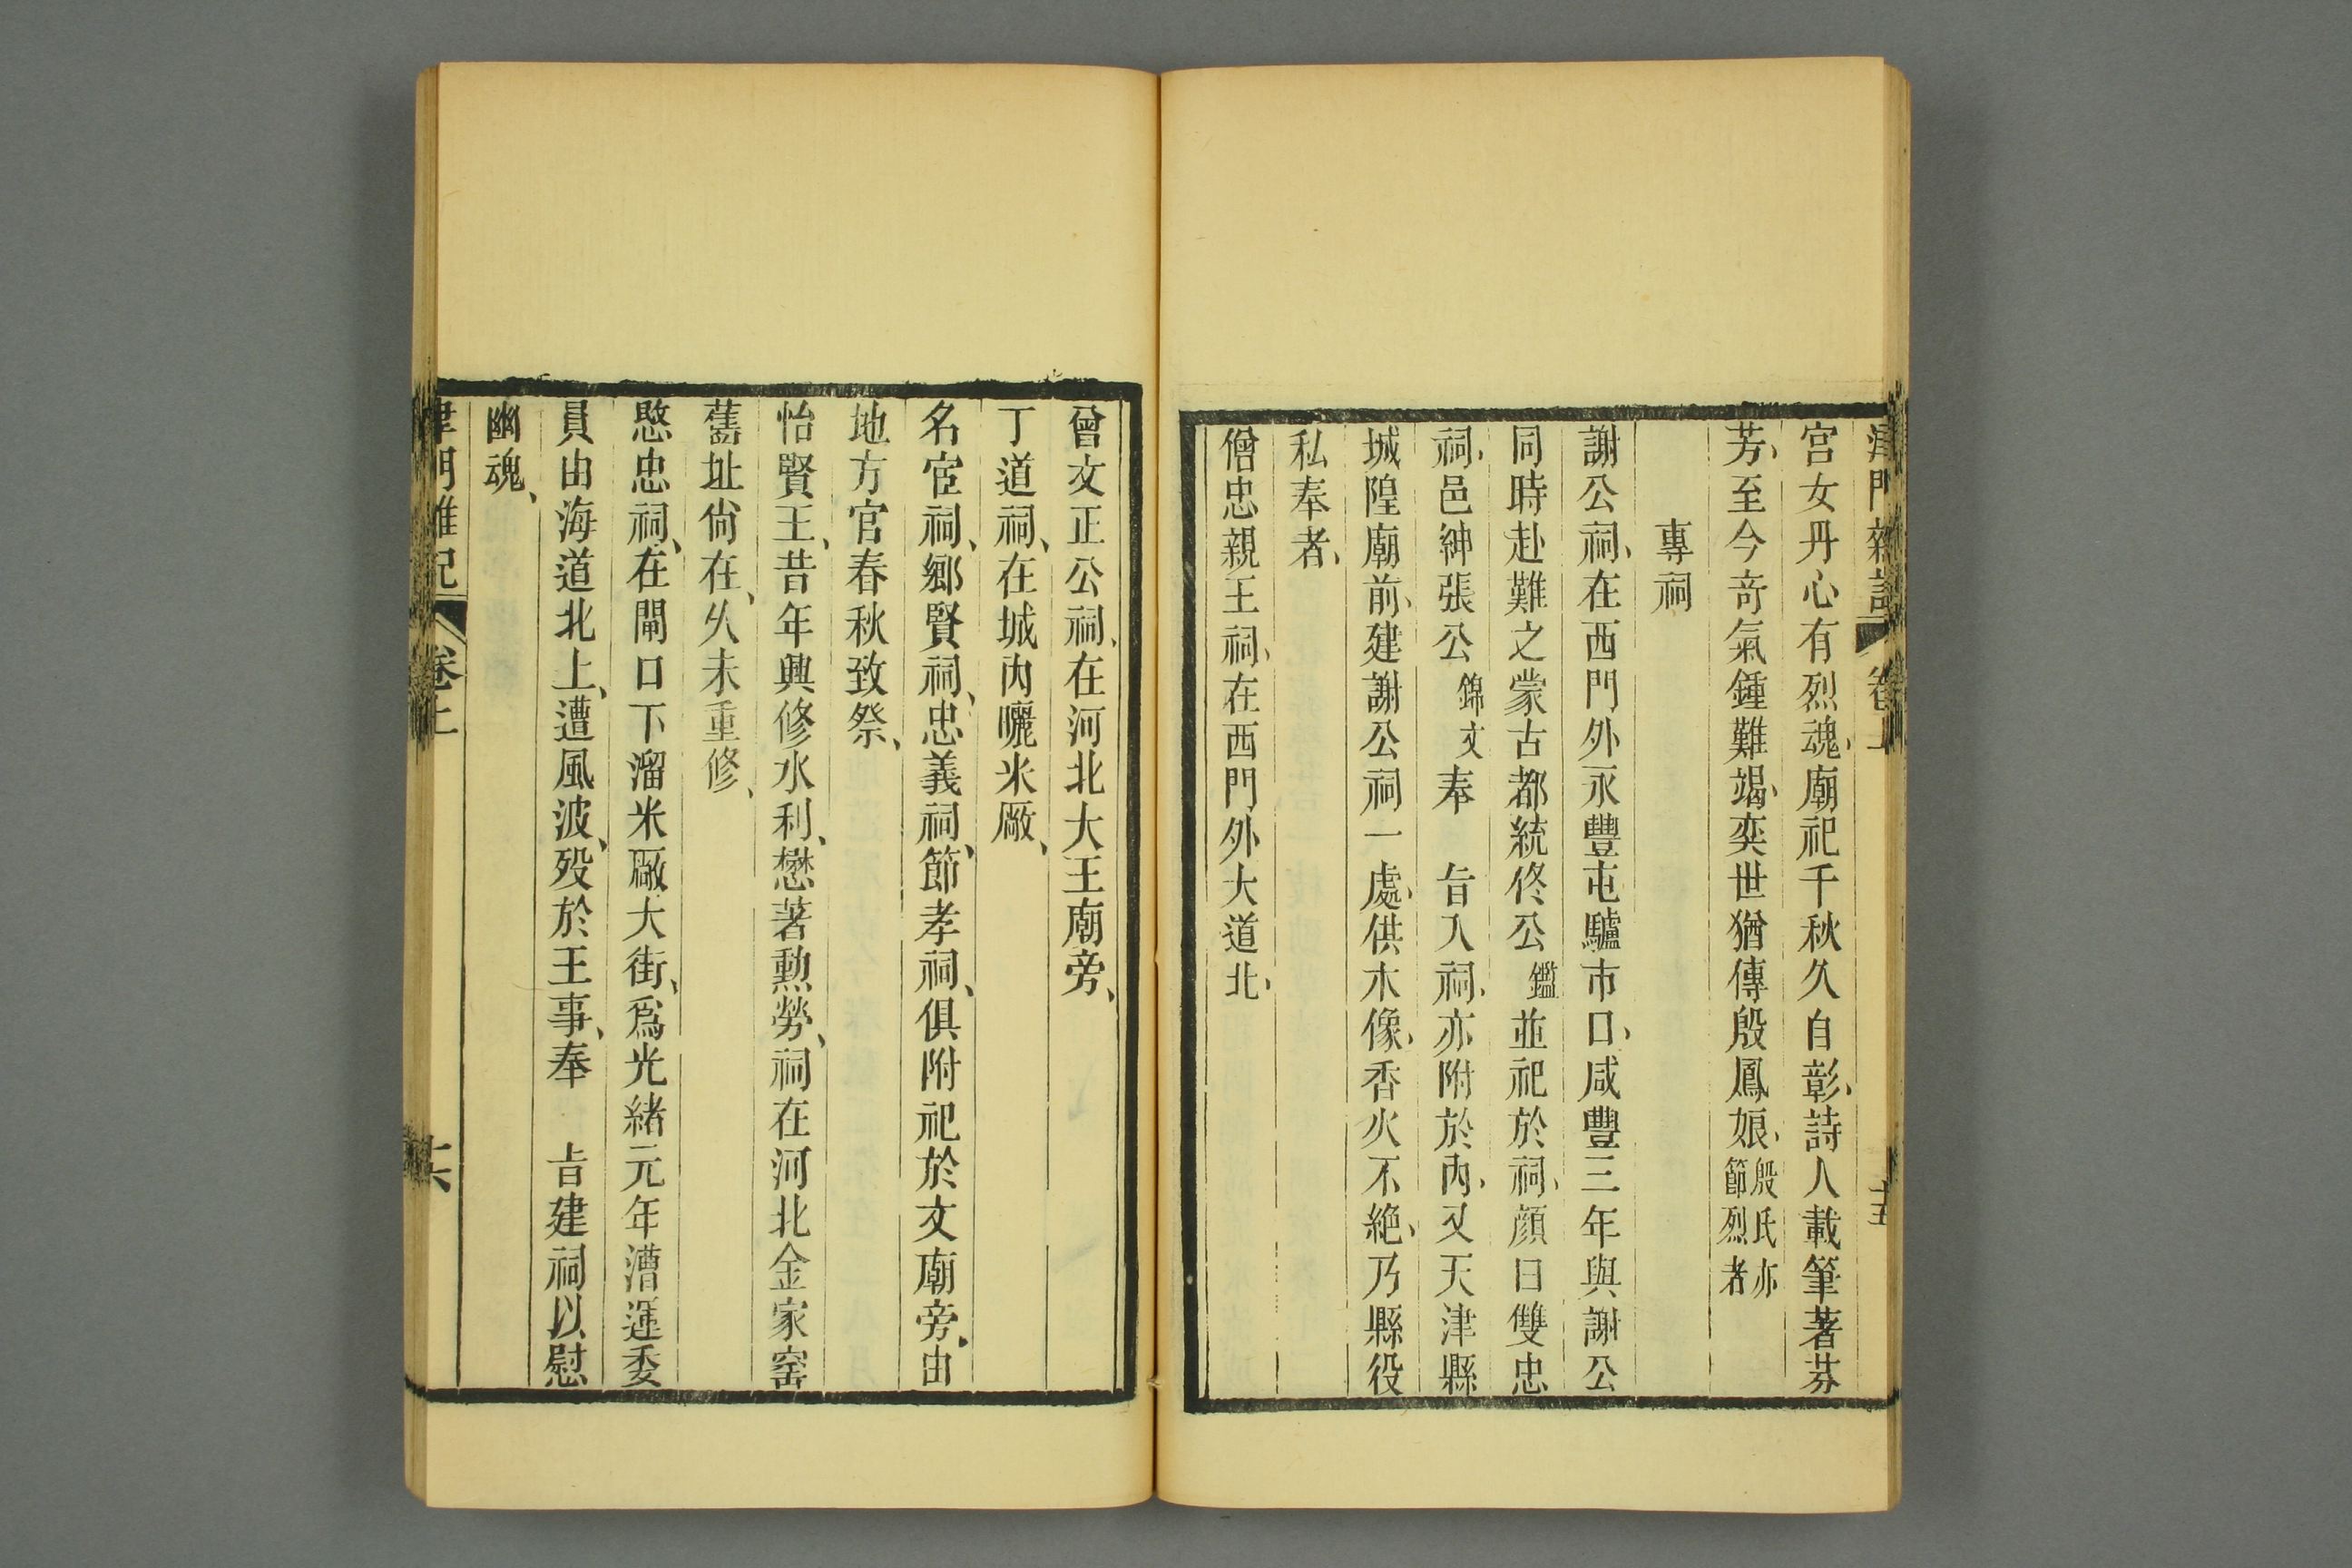 津門雜記 卷上 十五
宫女丹心有烈魂、廟祀千秋久自彰、詩人載筆著芬
芳、至今奇氣鍾難竭、奕世猶傳殷鳳娘、殷氏亦節烈者
專祠
謝公祠、在西門外永豐屯驢市口、咸豐三年與謝公
同時赴難之蒙古都統佟公鑑並祀於祠、顔曰雙忠
祠、邑紳張公錦文奉 旨入祠、亦附於內、又天津縣
城隍廟前、建謝公祠一處、供木像、香火不絶、乃縣役
私奉者、
僧忠親王祠、在西門外大道北、
曾文正公祠、在河北大王廟旁、
丁道祠、在城內曬米厰、
名宦祠、鄉賢祠、忠義祠、節孝祠、俱附祀於文廟旁、由
地方官春秋致祭、
怡賢王、昔年興修水利、懋著勲勞、祠在河北金家窰
舊址尙在、久未重修、
愍忠祠、在閘口下溜米厰大街、爲光緒元年漕運委
員由海道北上、遭風波、殁於王事、奉 旨建祠以慰
幽魂、
津門雜記 卷上 十六